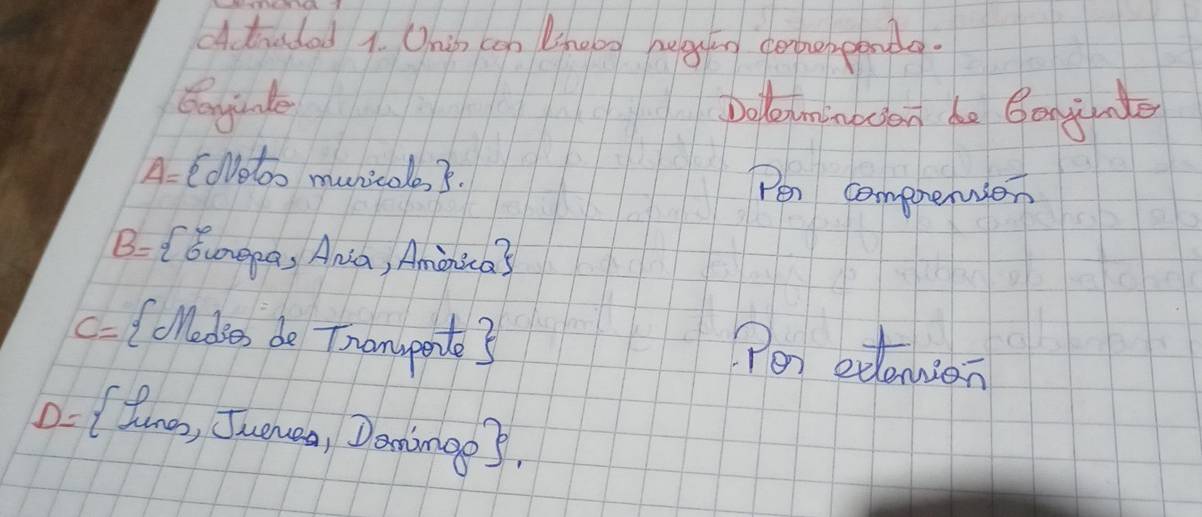 Actividad 1. Unir con líneas según corresponda.
Conjunto
Determinación de Conjunto
A={Notas musicales}.
Por comprensión
B={Europa, Asia, América}
C={Medios de Transporte}
Por extensión
D={Lunes, Jueves, Domingo}.